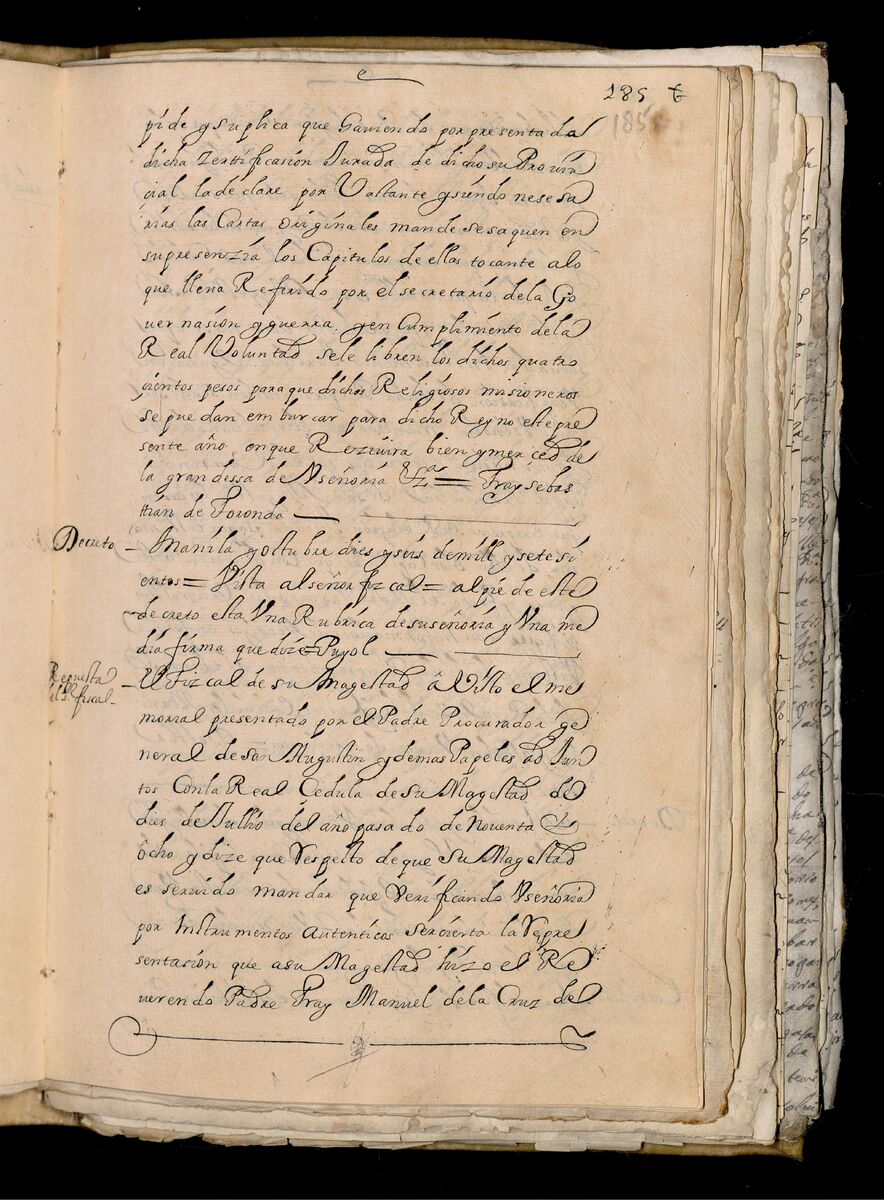 185
185
pide y suplica que haviendo por presentada
dicha zerttificasion Jurada de dicho su Provin
cial la declare por Vastante y siendo nesesa
rias las Cartas originales mande se saquen en
su presenzia los Capitulos de ellas tocante a lo
que lleua Referido por el secretario de la Go
uernasion y guerra, y en Cumplimiento de la
Real Voluntad se le libren los dichos quatro
cientos pesos para que dichos Religiosos misioneros
se puedan embarcar para dicho Reyno este pre
sente año, en que Rezeuira bien y merced de
la grandessa de Vseñoria &ª = Fray sebas
ttian de Foronda
Decreto — Manila y octubre dies y seis de mill y sete si
entos = Vista al señor fizcal = al pie de este
decreto esta Vna Rubrica de su señoria y Vna me
dia firma que dize = Puyol
Repuesta
el Sr. fiscal
— El Fizcal de su Magestad â Visto el me
morial presentado por el Padre Procurador ge
neral de san Augustin y demas Papeles adJun
tos Con la Real Cedula de su Magestad de
dies de Jullio del año pasado de Noventa &
ôcho y dize que Respecto de que su Magestad
es seruido mandar que Verificando Vseñoria
por instrumentos autenticos ser cierta la Repre
sentasion que a su Magestad hizo el Re
uerendo Padre Fray Manuel de la Cruz de